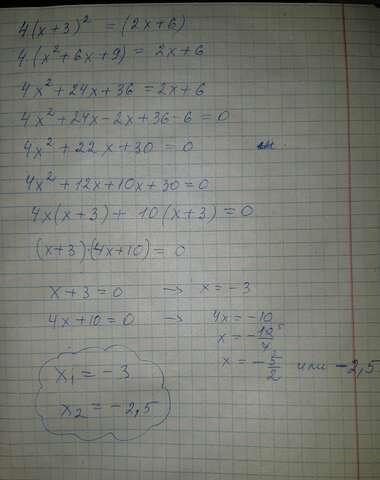 4(x+3)² = (2x+6)
4·(x²+6x+9) = 2x+6
4x²+24x+36 = 2x+6
4x²+24x-2x+36-6 = 0
4x²+22x+30 = 0
4x²+12x+10x+30=0
4x(x+3)+ 10(x+3) = 0
(x+3)·(4x+10) = 0
x+3 = 0 → x = -3
4x+10 = 0 → 4x = -10
x = -10/4
x = -5/2 или -2,5
x₁ = -3
x₂ = -2,5